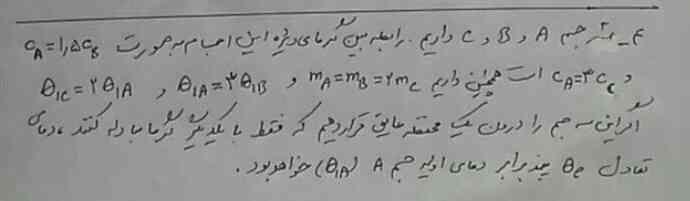 ۴ـ سه جسم A و B و C داریم. رابطه بین گرمای ویژه این اجسام به صورت c_A = ۱٫۵ c_B
و c_A = ۳ c_C است همچنین داریم m_A = m_B = ۲m_C و θ_1A = ۳θ_1B و θ_1C = ۲θ_1A
اگر این سه جسم را درون یک محفظه عایق قرار دهیم که فقط با یکدیگر گرما مبادله کنند، دمای
تعادل θ_e چند برابر دمای اولیه جسم A (θ_1A) خواهد بود.